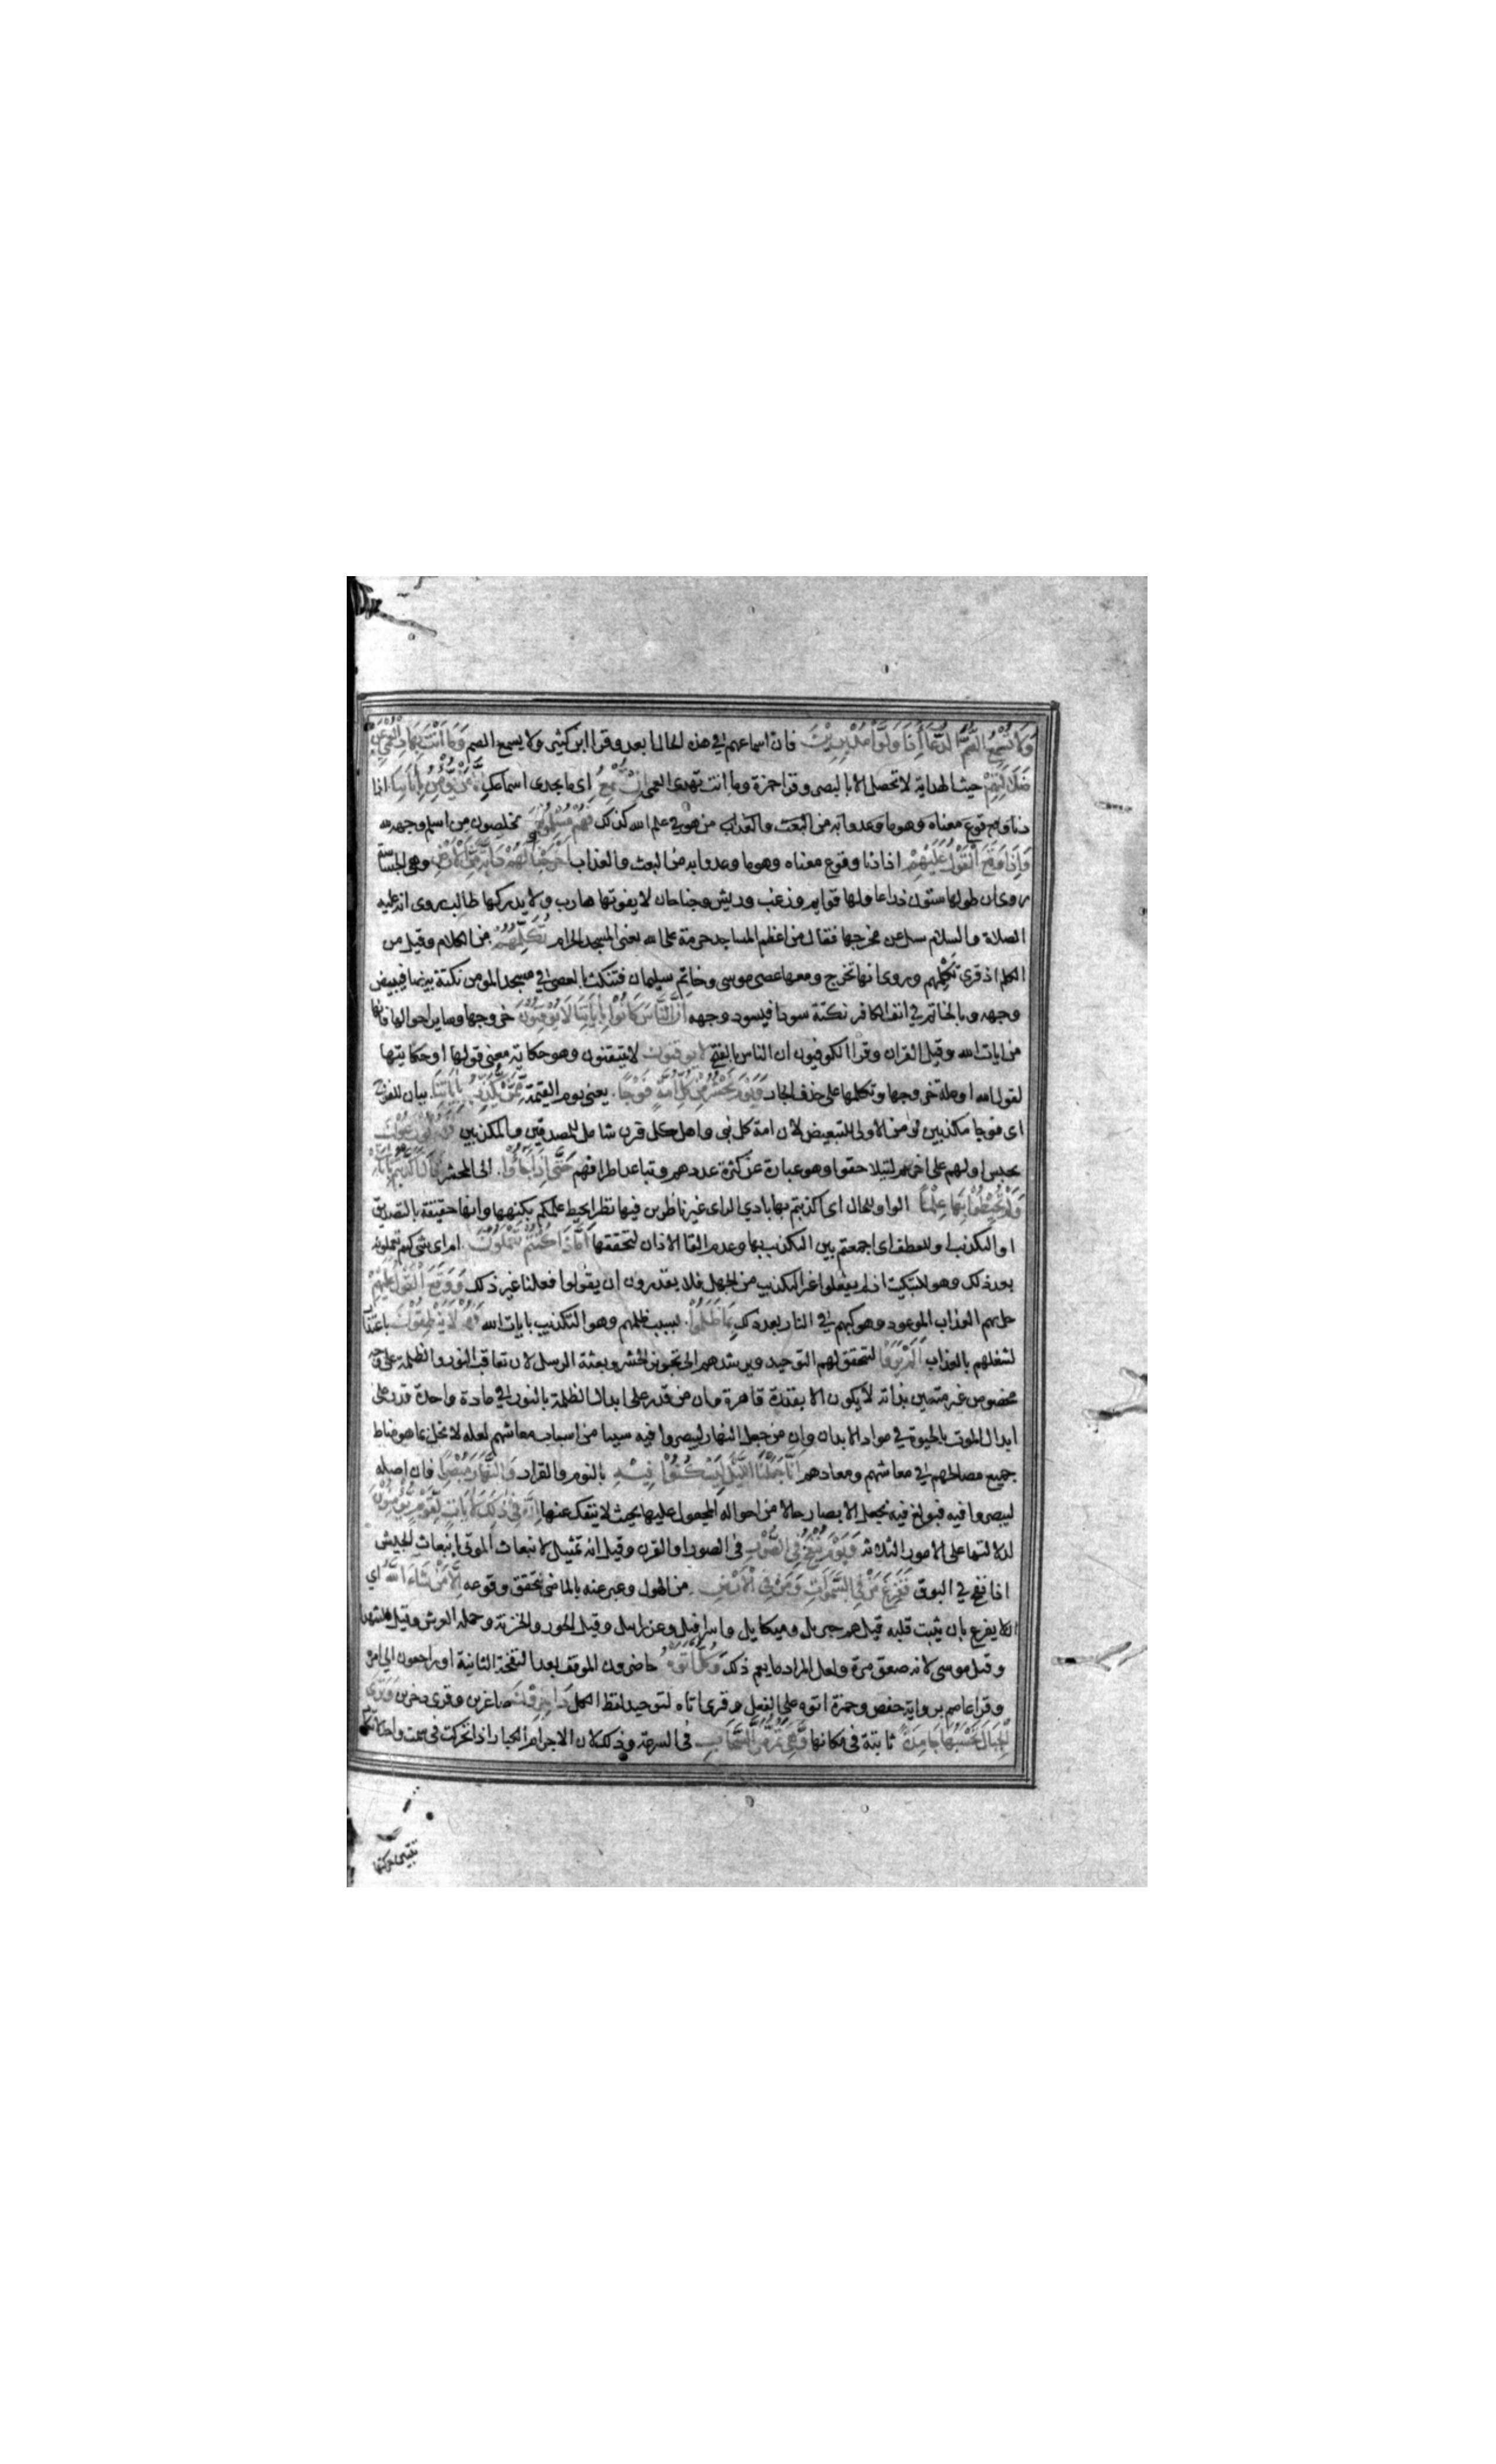 وَلَا تُسْمِعُ الصُّمَّ الدُّعَاءَ إِذَا وَلَّوْا مُدْبِرِينَ فان اسماعهم في هذه الحال ابعد وقرا ابن كثير ولا يسمع الصم وَمَا أَنْتَ بِهَادِي الْعُمْيِ عَنْ
ضَلَالَتِهِمْ حيث الهداية لا تحصل الا بالبصر وقرا حمزة وما انت تهدى العمى إِنْ تُسْمِعُ اى ما يجدى اسماعك إِلَّا مَنْ يُؤْمِنُ بِآيَاتِنَا اذا
دنا وقوع معناه وهو ما وعدوا به من البعث والعذاب من هو في علم الله كذلك فَهُمْ مُسْلِمُونَ مخلصون من اسلم وجهه لله
وَإِذَا وَقَعَ الْقَوْلُ عَلَيْهِمْ اذا دنا وقوع معناه وهو ما وعدوا به من البعث والعذاب أَخْرَجْنَا لَهُمْ دَابَّةً مِنَ الْأَرْضِ وهى الجساسة
روى ان طولها ستون ذراعا ولها قوايم وزغب وريش وجناحان لا يفوتها هارب ولا يدركها طالب روى انه عليه
الصلاة والسلام سئل عن مخرجها فقال من اعظم المساجد حرمة على الله يعنى المسجد الحرام تُكَلِّمُهُمْ من الكلام وقيل من
الكلم اذ قرى تكلمهم وروى انها تخرج ومعها عصى موسى وخاتم سليمان فتنكت بالعصى في مسجد المومن نكتة بيضا فيبيض
وجهه وبالخاتم في انف الكافر نكتة سودا فيسود وجهه أَنَّ النَّاسَ كَانُوا بِآيَاتِنَا لَا يُوقِنُونَ خروجها وساير احوالها فانها
من ايات الله وقيل القران وقرا الكوفيون ان الناس بالفتح لا يوقنون لا يتيقنون وهو حكاية معنى قولها او حكايتها
لقول الله او علة خروجها وتكلمها على حذف الجار وَيَوْمَ نَحْشُرُ مِنْ كُلِّ أُمَّةٍ فَوْجًا يعنى يوم القيمة مِمَّنْ يُكَذِّبُ بِآيَاتِنَا بيان للفوج
اى فوجا مكذبين ومن الاولى للتبعيض لان امة كل نبى واهل كل قرن شامل للمصدقين والمكذبين فَهُمْ يُوزَعُونَ
يحبس اولهم على اخرهم ليتلاحقوا وهو عبارة عن كثرة عددهم وتباعد اطرافهم حَتَّى إِذَا جَاءُوا الى المحشر قَالَ أَكَذَّبْتُمْ بِآيَاتِي
وَلَمْ تُحِيطُوا بِهَا عِلْمًا الواو للحال اى اكذبتم بها بادي الراى غير ناظرين فيها نظرا يحيط علمكم بكنهها وانها حقيقة بالتصديق
او التكذيب او للعطف اى اجمعتم بين التكذيب بها وعدم القا الاذان لتحققها أَمَّاذَا كُنْتُمْ تَعْمَلُونَ ام اى شى كنتم تعملونه
بعد ذلك وهو للتبكيت اذ لم يفعلوا غير التكذيب من الجهل فلا يقدرون ان يقولوا فعلنا غير ذلك وَوَقَعَ الْقَوْلُ عَلَيْهِمْ
حل بهم العذاب الموعود وهو كبهم في النار بعد ذلك بِمَا ظَلَمُوا بسبب ظلمهم وهو التكذيب بايات الله فَهُمْ لَا يَنْطِقُونَ باعتذار
لشغلهم بالعذاب أَلَمْ يَرَوْا ليتحقق لهم التوحيد ويرشدهم الى تجويز الحشر وبعثة الرسل لان تعاقب النور والظلمة على وجه
مخصوص غير متعين بذاته لا يكون الا بقدرة قاهرة وان من قدر على ابدال الظلمة بالنور في مادة واحدة قدر على
ابدال الموت بالحيوة في مواد الابدان وان من جعل النهار ليبصروا فيه سببا من اسباب معاشهم لعله لا يخل بما هو مناط
جميع مصالحهم في معاشهم ومعادهم أَنَّا جَعَلْنَا اللَّيْلَ لِيَسْكُنُوا فِيهِ بالنوم والقرار وَالنَّهَارَ مُبْصِرًا فان اصله
ليبصروا فيه فبولغ فيه بجعل الابصار حالا من احواله المجعول عليها بحيث لا ينفك عنها إِنَّ فِي ذَلِكَ لَآيَاتٍ لِقَوْمٍ يُؤْمِنُونَ
لدلالتها على الامور الثلاثة وَيَوْمَ يُنْفَخُ فِي الصُّورِ في الصور او القرن وقيل انه تمثيل لانبعاث الموتى بانبعاث الجيش
اذا نفخ في البوق فَفَزِعَ مَنْ فِي السَّمَوَاتِ وَمَنْ فِي الْأَرْضِ من الهول وعبر عنه بالماضى لتحقق وقوعه إِلَّا مَنْ شَاءَ اللَّهُ اي
ان لا يفزع بان يثبت قلبه قيل هم جبريل وميكايل واسرافيل وعزرايل وقيل الحور والخزنة وحملة العرش وقيل الشهدا
وقيل موسى لانه صعق مرة ولعل المراد ما يعم ذلك وَكُلٌّ أَتَوْهُ حاضرون الموقف بعد النفخة الثانية او راجعون الى امره
وقرا عاصم برواية حفص وحمزة اتوه على الفعل وقرى اتاه لتوحيد لفظ الكل دَاخِرِينَ صاغرين وقرى دخرين وَتَرَى
الْجِبَالَ تَحْسَبُهَا جَامِدَةً ثابتة في مكانها وَهِيَ تَمُرُّ مَرَّ السَّحَابِ في السرعة وذلك لان الاجرام الكبار اذا تحركت في سمت واحد لا تكاد
تتبين حركتها